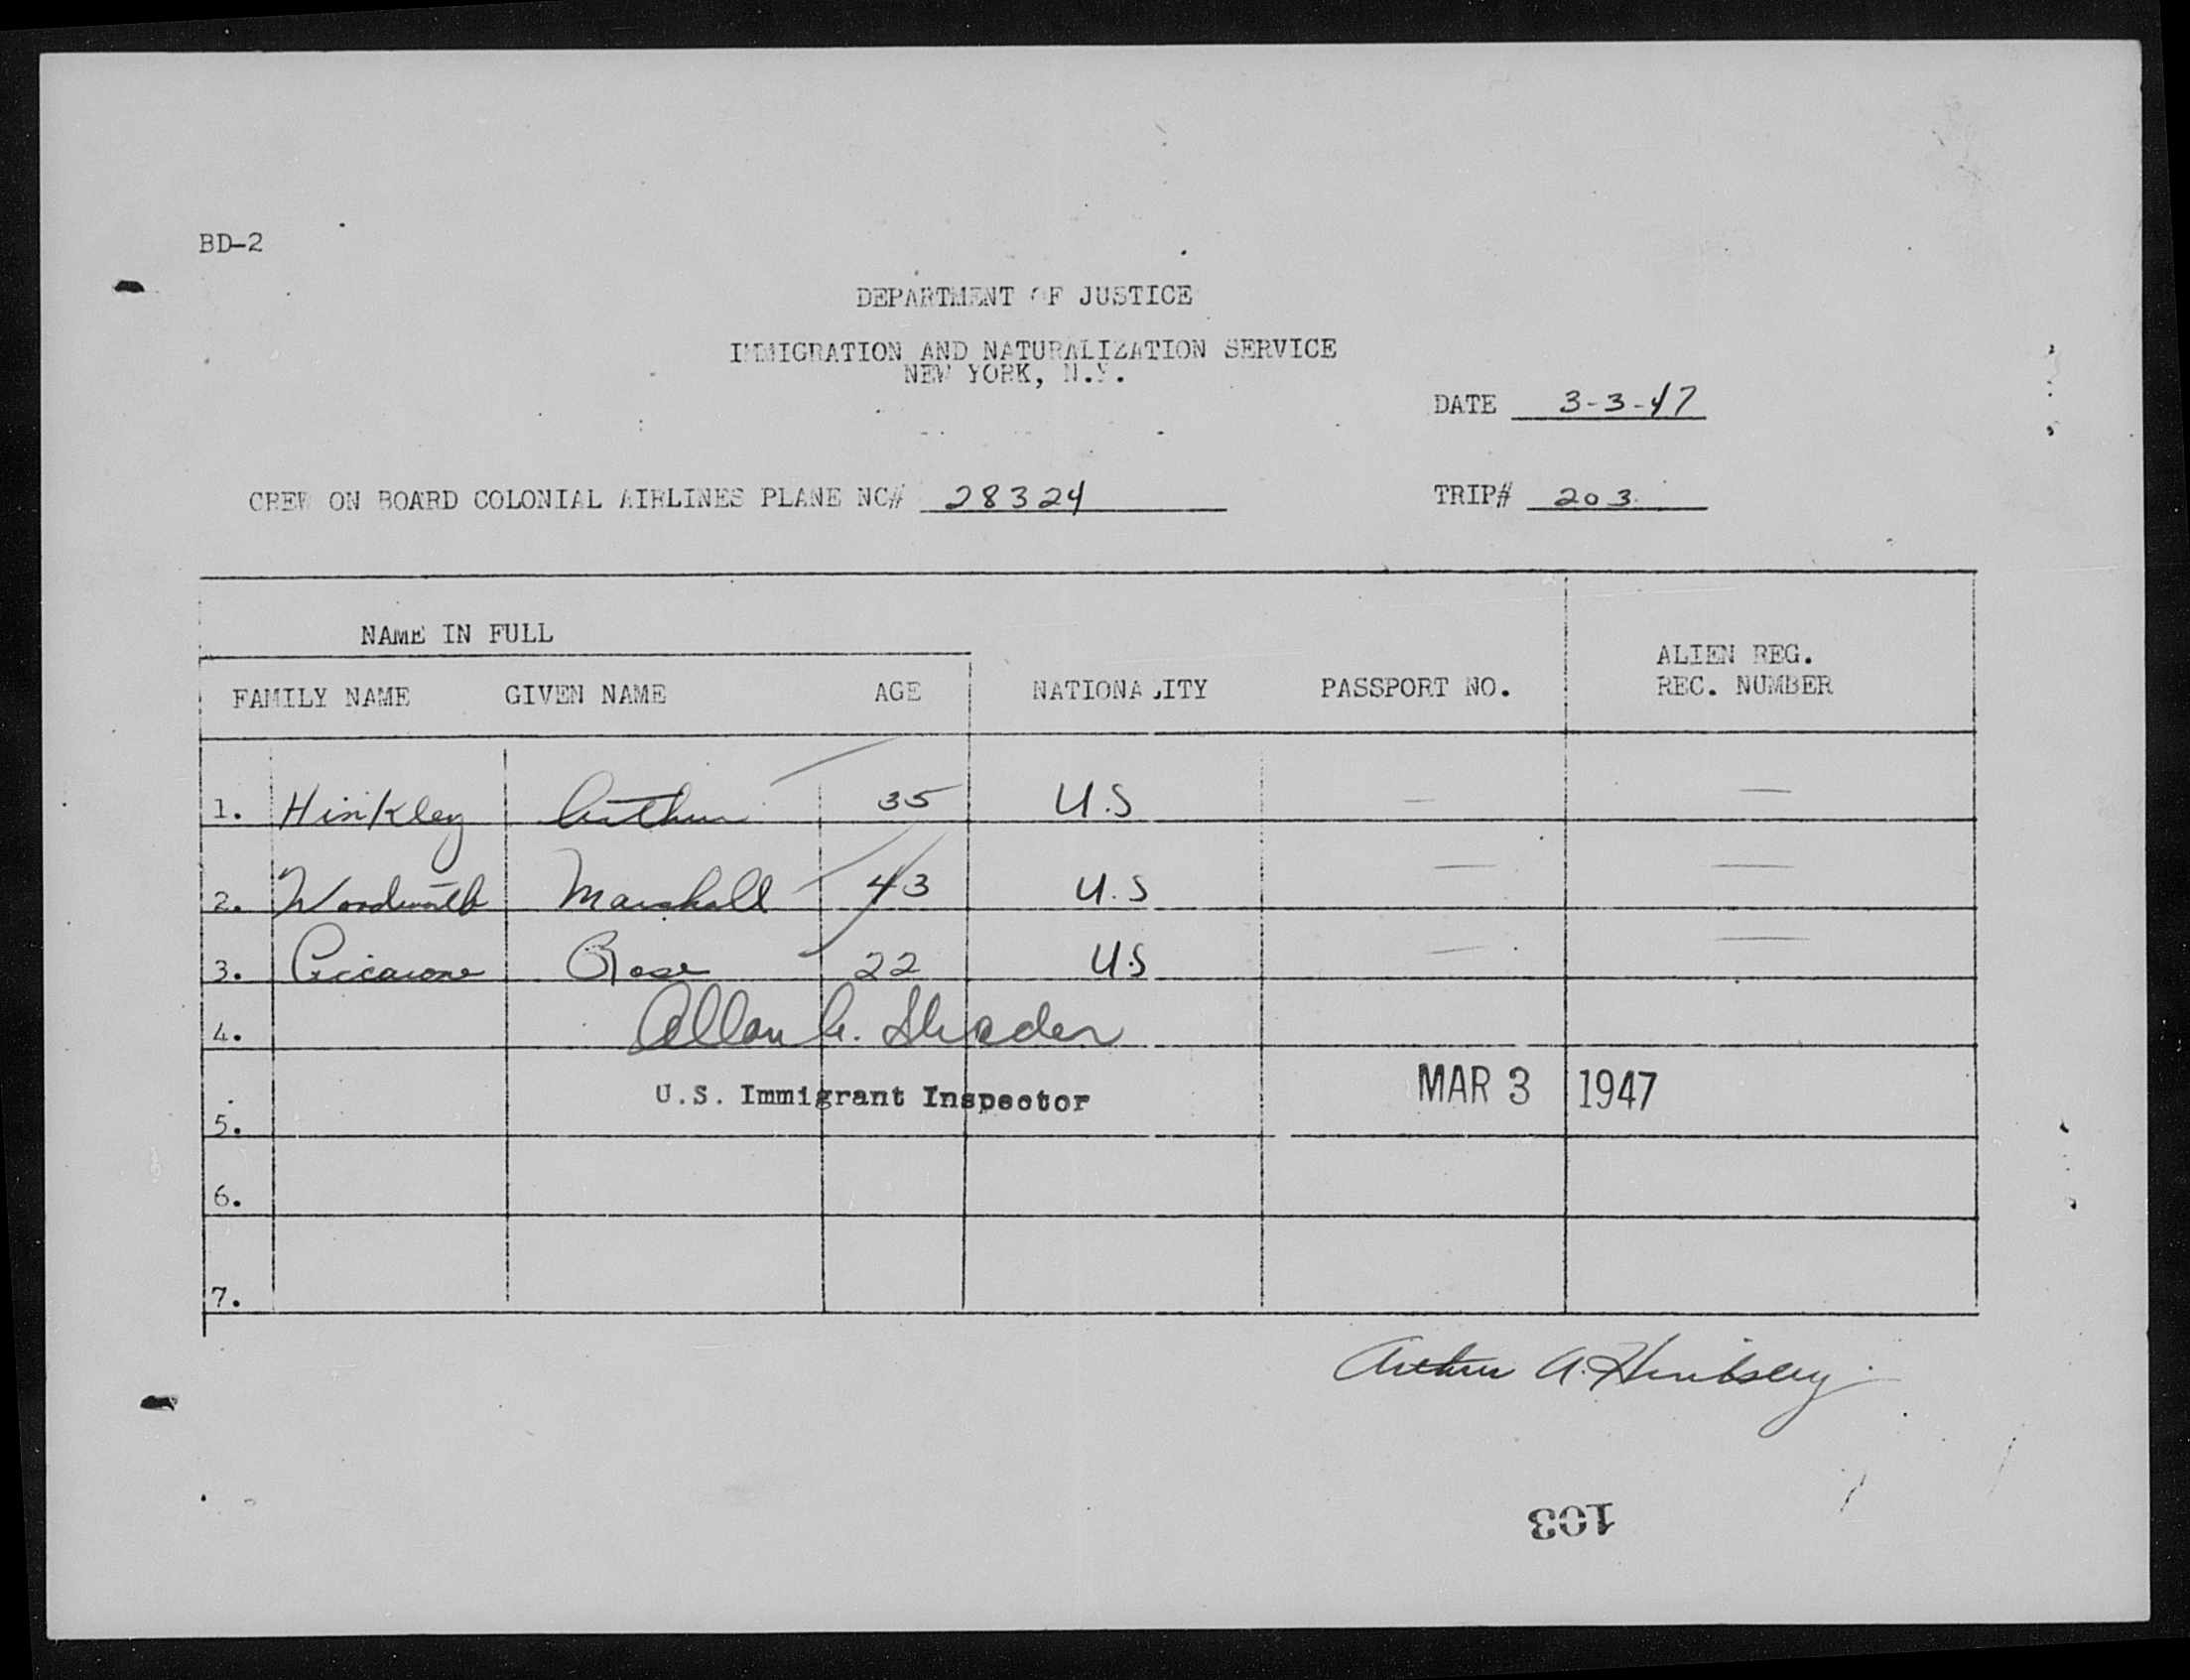 BD-2
DEPARTMENT OF JUSTICE
IMMIGRATION AND NATURALIZATION SERVICE
NEW YORK, N.Y.
DATE 3-3-47
CREW ON BOARD COLONIAL AIRLINES PLANE NC# 28324 TRIP# 203
NAME IN FULL
FAMILY NAME GIVEN NAME AGE NATIONALITY PASSPORT NO. ALIEN REG. REC. NUMBER
1. Hinkley Arthur 35 U.S — —
2. Woodworth Marshall 43 U.S — —
3. Rose 22 U.S — —
4. Allan G. Shader
U.S. Immigrant Inspector MAR 3 1947
5.
6.
7.
Arthur A. Hinksley
103